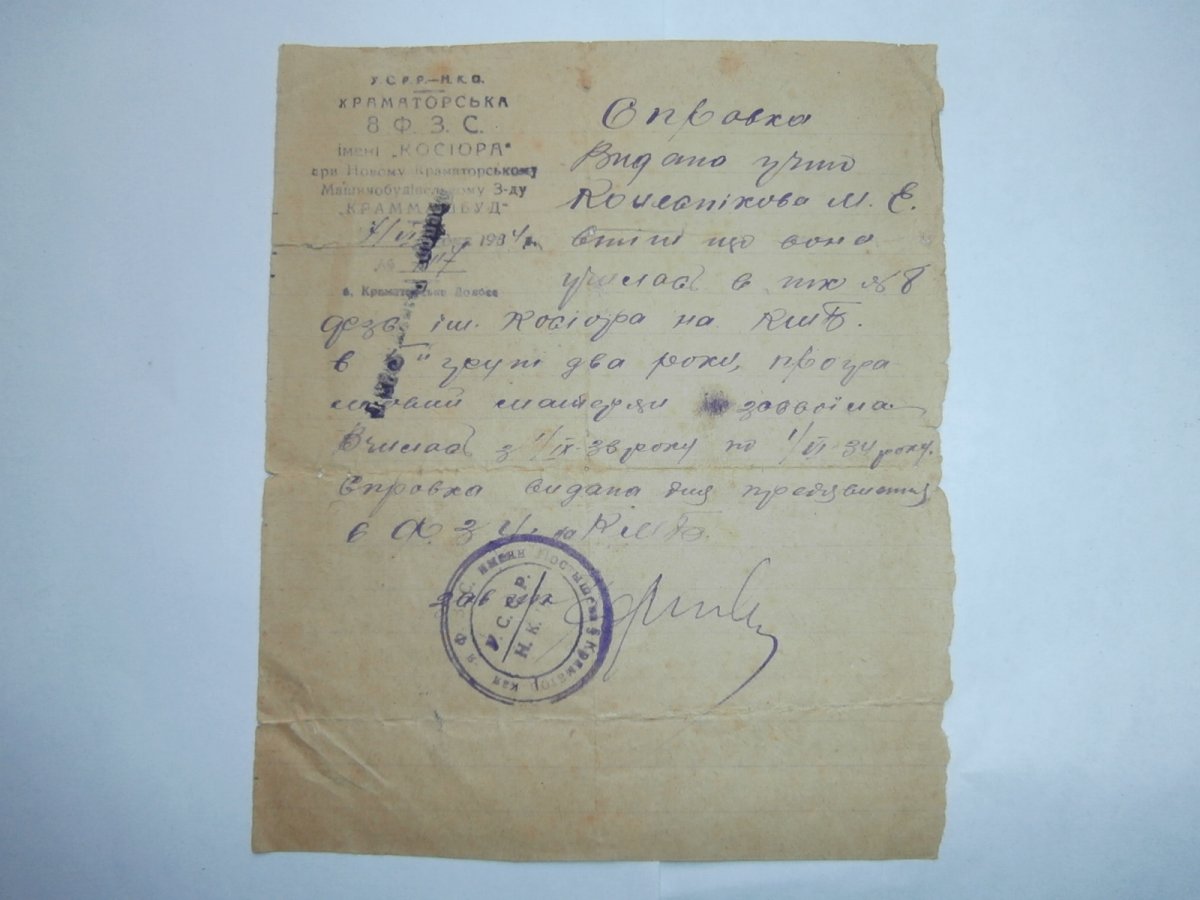 У.С.Р.Р.—Н.К.О.
КРАМАТОРСЬКА
8 Ф. З. С.
імені „КОСІОРА"
при Новому Краматорському
Машинобудівельному З-ду
„КРАММАШБУД"
7/VI 1934 р.
№
с. Краматорське Донбас
Справка
Видано учню
М. Е.
що вона
училась в № 8
фзс ім. Косіора на КМТБ.
в 5" групі два роки, програ
мовий матеріял засвоїла
Вчилась з 1/IX-33 року по 1/VI-34 року.
Справка видана для предявлення
в Ф. З. У. на КМТБ.
Зав. шк
Ф.З.С. имени Постышева в Краматор кая
У.С.Р.Р.
Н.К.